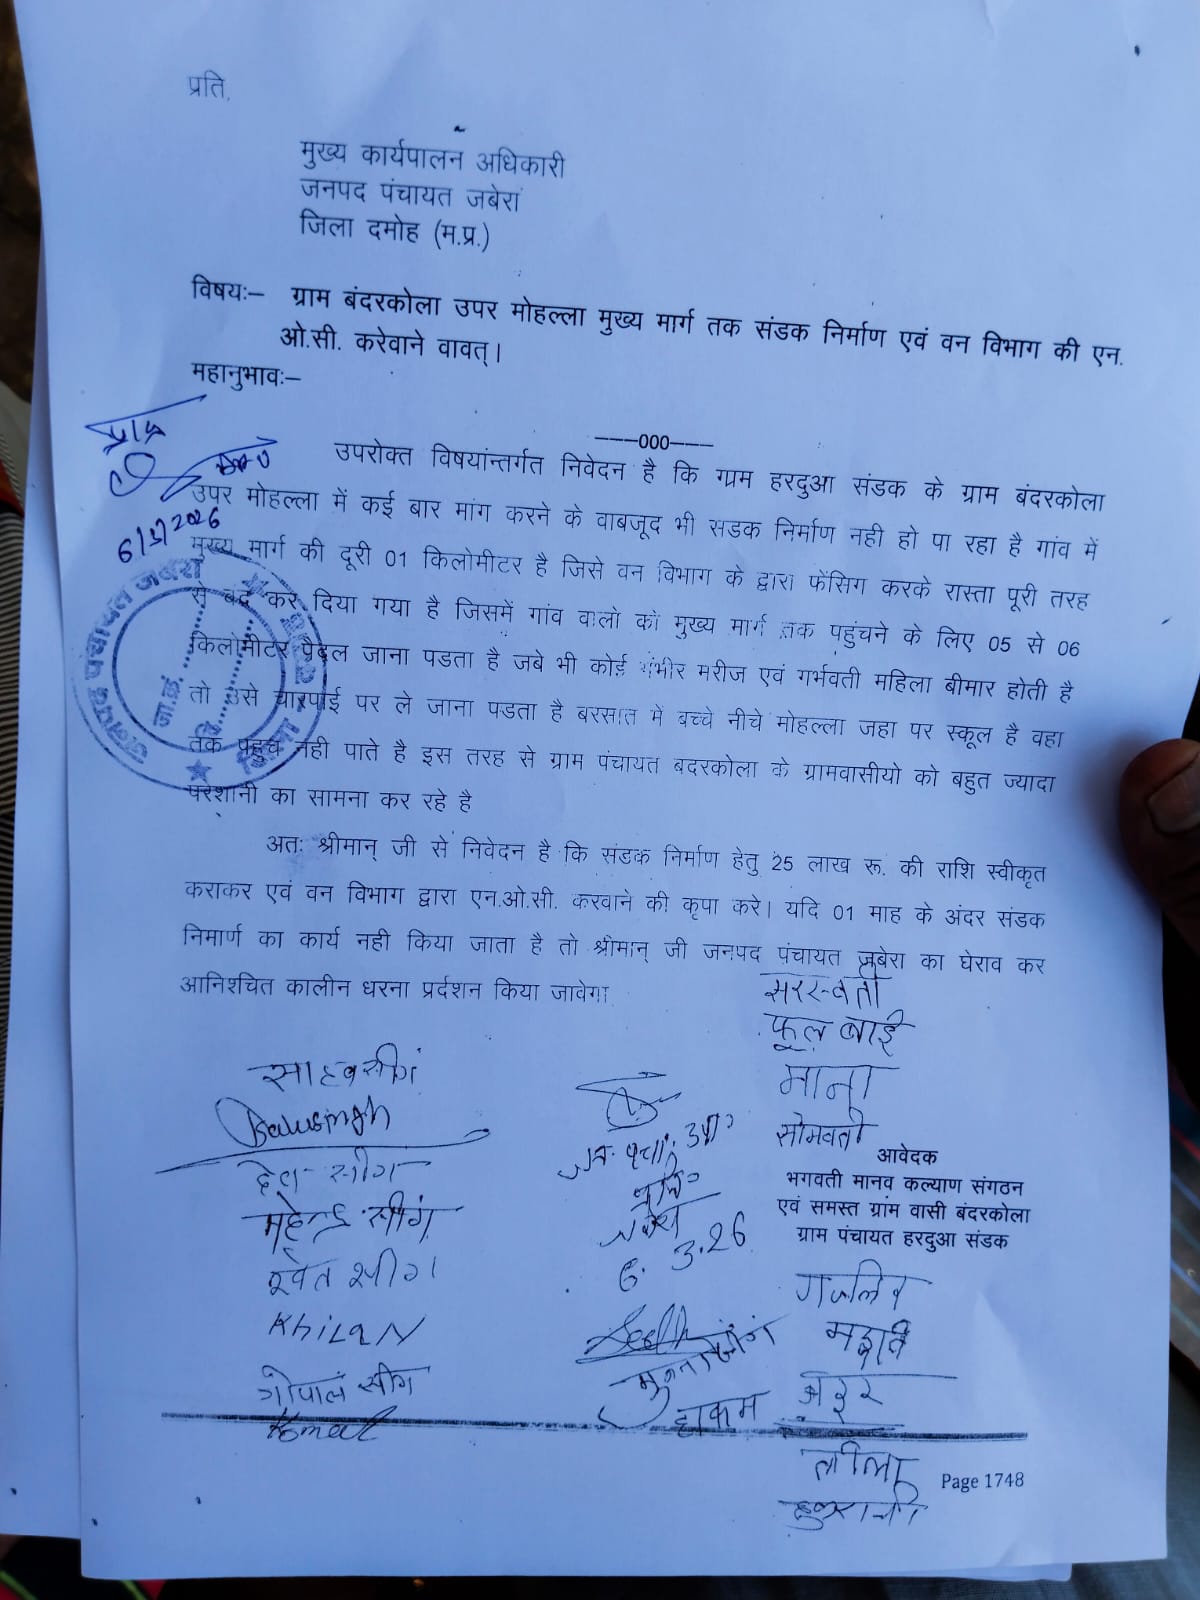 प्रति,
मुख्य कार्यपालन अधिकारी
जनपद पंचायत जबेरा
जिला दमोह (म.प्र.)
विषयः– ग्राम बंदरकोला उपर मोहल्ला मुख्य मार्ग तक संडक निर्माण एवं वन विभाग की एन.
ओ.सी. करेवाने वावत्।
महानुभावः–
–––000–––
उपरोक्त विषयांन्तर्गत निवेदन है कि गा्रम हरदुआ संडक के ग्राम बंदरकोला
उपर मोहल्ला में कई बार मांग करने के वाबजूद भी सडक निर्माण नही हो पा रहा है गांव में
मुख्य मार्ग की दूरी 01 किलोमीटर है जिसे वन विभाग के द्वारा फेंसिग करके रास्ता पूरी तरह
से बंद कर दिया गया है जिसमें गांव वालो को मुख्य मार्ग तक पहुंचने के लिए 05 से 06
किलोमीटर पैदल जाना पडता है जबे भी कोई गंभीर मरीज एवं गर्भवती महिला बीमार होती है
तो उसे चारपाई पर ले जाना पडता है बरसात में बच्चे नीचे मोहल्ला जहा पर स्कूल है वहा
तक पहुच नही पाते है इस तरह से ग्राम पंचायत बदरकोला के ग्रामवासीयो को बहुत ज्यादा
परेशानी का सामना कर रहे है
6/3/2026
जनपद पंचायत जबेरा
जा.क्रं.
दि.
अतः श्रीमान् जी से निवेदन है कि संडक निर्माण हेतु 25 लाख रू. की राशि स्वीकृत
कराकर एवं वन विभाग द्वारा एन.ओ.सी. करवाने की कृपा करे। यदि 01 माह के अंदर संडक
निमार्ण का कार्य नही किया जाता है तो श्रीमान् जी जनपद पंचायत जबेरा का घेराव कर
आनिश्चित कालीन धरना प्रर्दशन किया जावेगा
सरस्वती
फूल बाई
माना
सोमवती
आवेदक
भगवती मानव कल्याण संगठन
एवं समस्त ग्रांम वासी बंदरकोला
ग्राम पंचायत हरदुआ संडक
साहबसींग
Balusingh
महेन्द्र सींग
KhiLaN
गोपाल सींग
Komal
6.3.26
मुन्ना सींग
हाकम
लीला
Page 1748